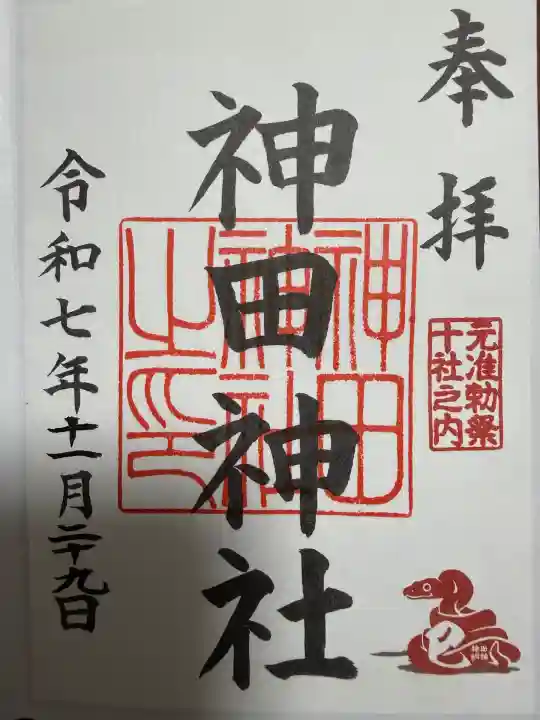 奉拝
元准勅祭
十社之内
神田神社
神田
神社
之印
巳
令和七年十一月二十九日